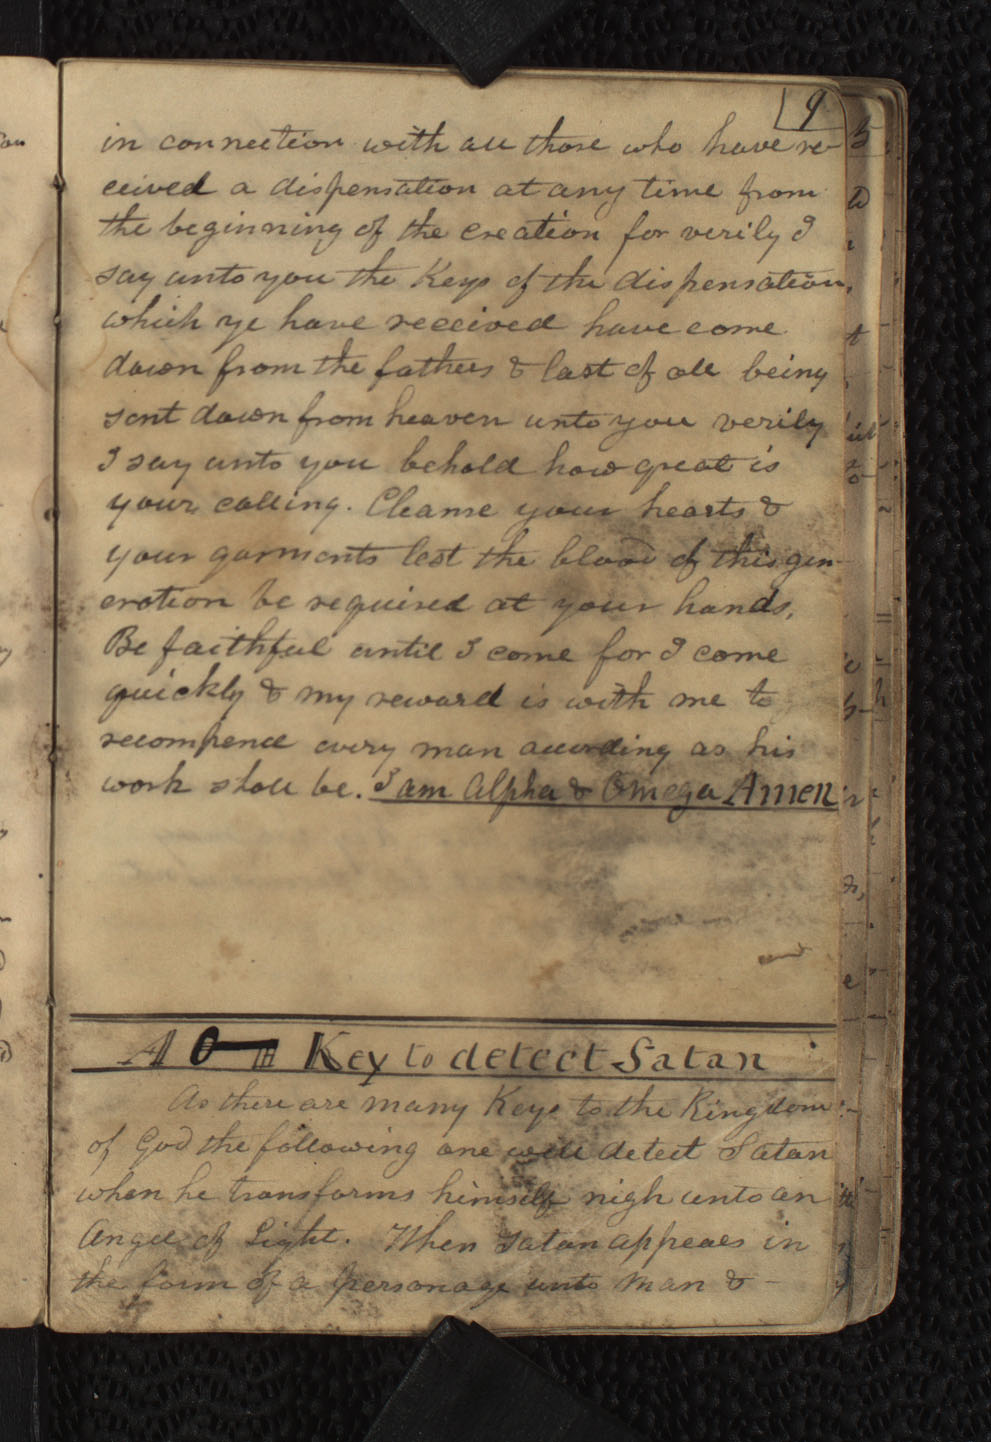 9
in connection with all those who have re-
ceived a dispensation at any time from
the beginning of the creation for verily I
say unto you the Keys of the dispensation,
which ye have received have come
down from the fathers & last of all being
sent down from heaven unto you verily
I say unto you behold how great is
your calling. Cleanse your hearts &
your garments lest the blood of this gen-
eration be required at your hands,
Be faithful until I come for I come
quickly & my reward is with me to
recompence every man according as his
work shall be. I am Alpha & Omega Amen
A Key to detect Satan
As there are many Keys to the Kingdom
of God the following one will detect Satan
when he transforms himself nigh unto an
Angel of Light. When Satan appears in
the form of a personage unto man & -